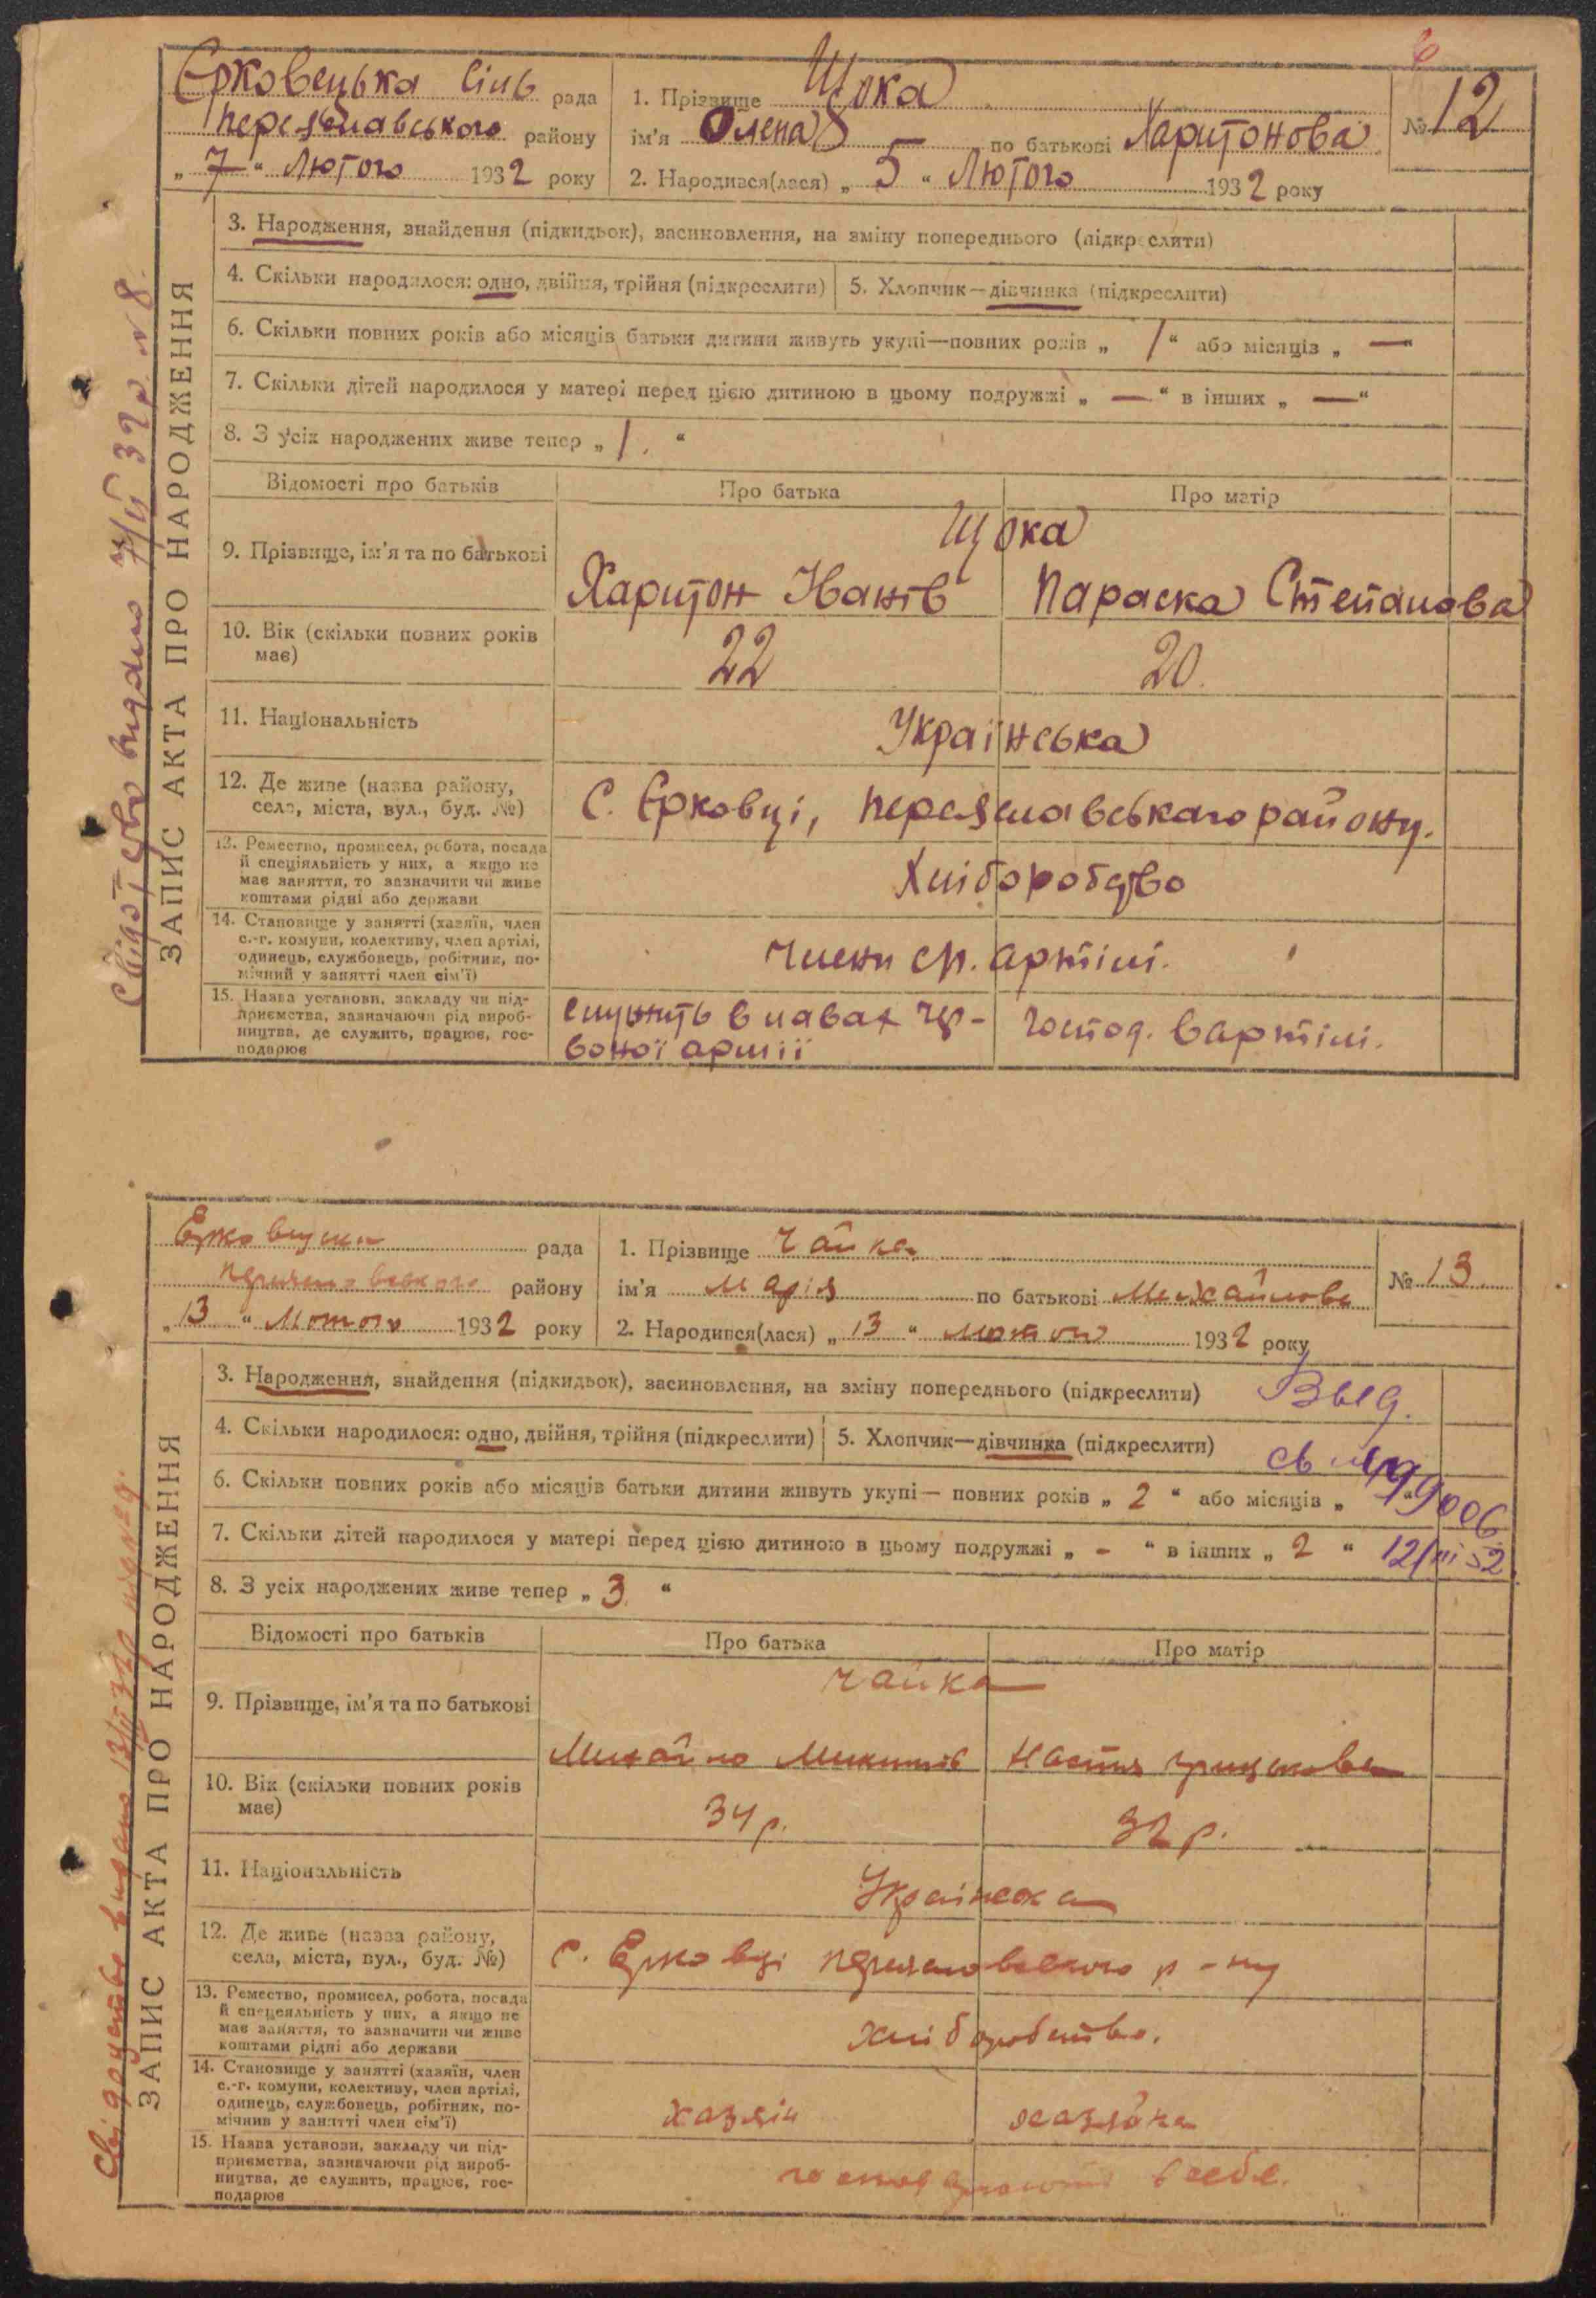 6
Єрковецька сіль рада
Переяславського району
„ 7 “ Лютого 1932 року
1. Прізвище Щока
ім'я Олена по батькові Харитонова
2. Народився(лася) „ 5 “ Лютого 1932 року
№ 12
ЗАПИС АКТА ПРО НАРОДЖЕННЯ
Свідотство видано 7/ІІ 32 р. № 8.
3. Народження, знайдення (підкидьок), засиновлення, на зміну попереднього (підкреслити)
4. Скільки народилося: одно, двійня, трійня (підкреслити)
5. Хлопчик—дівчинка (підкреслити)
6. Скільки повних років або місяців батьки дитини живуть укупі—повних років „ 1 “ або місяців „ — “
7. Скільки дітей народилося у матері перед цією дитиною в цьому подружжі „ — “ в інших „ — “
8. З усіх народжених живе тепер „ 1. “
Відомості про батьків
Про батька
Про матір
9. Прізвище, ім'я та по батькові
Щока
Харитон Іванів
Параска Степанова
10. Вік (скільки повних років
має)
22
20.
11. Національність
Українська
12. Де живе (назва району,
село, міста, вул., буд. №)
С. Єрковці, Переяславського району.
13. Ремество, промисел, робота, посада
й спеціяльність у них, а якщо не
має заняття, то зазначити чи живе
коштами рідні або держави
Хліборобство
14. Становище у занятті (хазяїн, член
с.-г. комуни, колективу, член артілі,
одинець, службовець, робітник, по-
мічний у занятті член сім'ї)
члени ср. артілі.
15. Назва установи, закладу чи під-
приємства, зазначаючи рід вироб-
ництва, де служить, працює, гос-
подарює
служить в лавах чр-
воної армії
господ. вартілі.
Ерковецка рада
району
„ 13 “ Лютого 1932 року
1. Прізвище Чайка
ім'я Марія по батькові Михайлова
2. Народився(лася) „ 13 “ лютого 1932 року
№ 13
ЗАПИС АКТА ПРО НАРОДЖЕННЯ
Свідоцтво видано 13/ІІ 32р
3. Народження, знайдення (підкидьок), засиновлення, на зміну попереднього (підкреслити)
Выд.
4. Скільки народилося: одно, двійня, трійня (підкреслити)
5. Хлопчик—дівчинка (підкреслити)
св
6. Скільки повних років або місяців батьки дитини живуть укупі— повних років „ 2 “ або місяців „
7. Скільки дітей народилося у матері перед цією дитиною в цьому подружжі „ - “ в інших „ 2 “
12/III 52
8. З усіх народжених живе тепер „ 3. “
Відомості про батьків
Про батька
Про матір
9. Прізвище, ім'я та по батькові
Чайка
Михайло Микитів
Настя Грицькова
10. Вік (скільки повних років
має)
34 р.
32 р.
11. Національність
Українска
12. Де живе (назва району,
села, міста, вул., буд. №)
с. Ерковці р-ну
13. Ремество, промисел, робота, посада
й спецеяльність у них, а якщо не
має заняття, то зазначити чи живе
коштами рідні або держави
хліборобство.
14. Становище у занятті (хазяїн, член
с.-г. комуни, колективу, член артілі,
одинець, службовець, робітник, по-
мічнив у занятті член сім'ї)
хазяін
хазяйка
15. Назва установи, закладу чи під-
приємства, зазначаючи рід вироб-
ництва, де служить, працює, гос-
подарює
в себе.